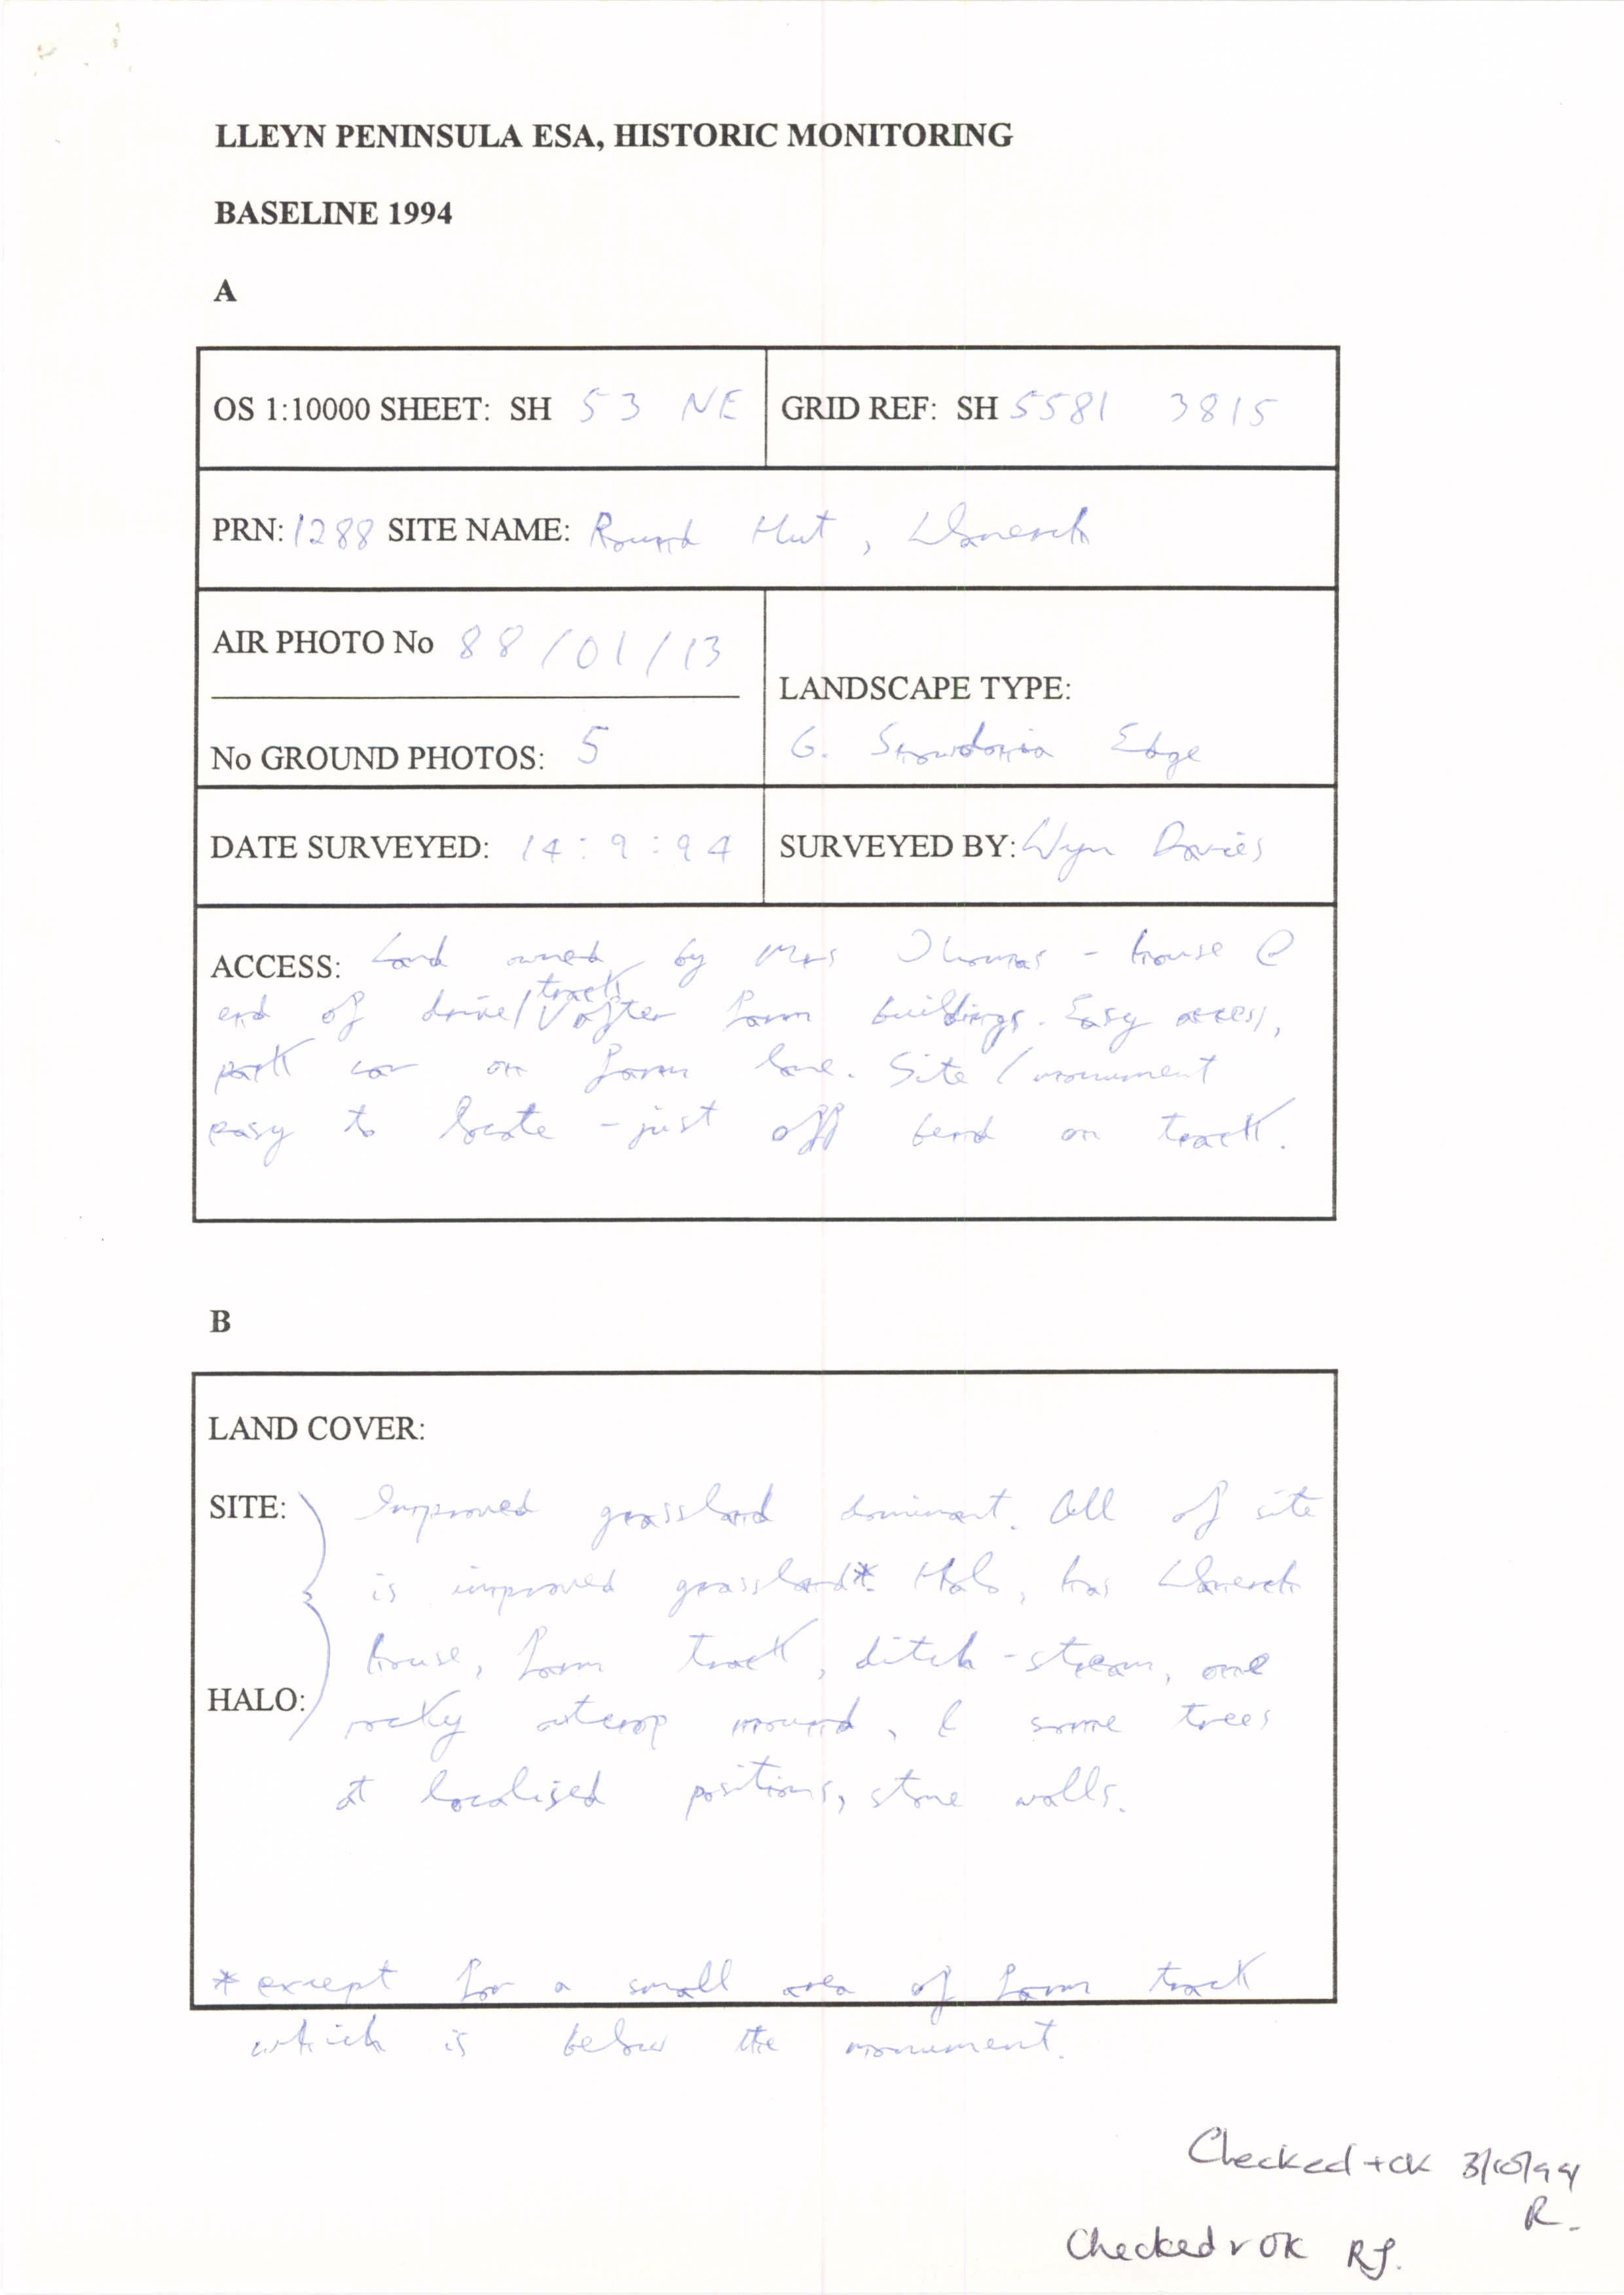 LLEYN PENINSULA ESA, HISTORIC MONITORING
BASELINE 1994
A
OS 1:10000 SHEET: SH 53 NE
GRID REF: SH 5581 3815
PRN: 1288 SITE NAME: Round Hut, Llanerch
AIR PHOTO No 88/01/13
No GROUND PHOTOS: 5
LANDSCAPE TYPE:
G. Snowdonia Edge
DATE SURVEYED: 14:9:94
SURVEYED BY: Wyn Davies
ACCESS: Land owned by Mrs Thomas - house @
end of drive/track after farm buildings. Easy access,
park car on farm lane. Site/monument
easy to locate - just off bend on track.
B
LAND COVER:
SITE: Improved grassland dominant. All of site
is improved grassland*. Halo, has Llanerch
house, farm track, ditch-stream, one
HALO: rocky outcrop mound, & some trees
at localised positions, stone walls.
* except for a small area of farm track
which is below the monument.
Checked + ok 3/10/94
R.
Checked + OK RJ.